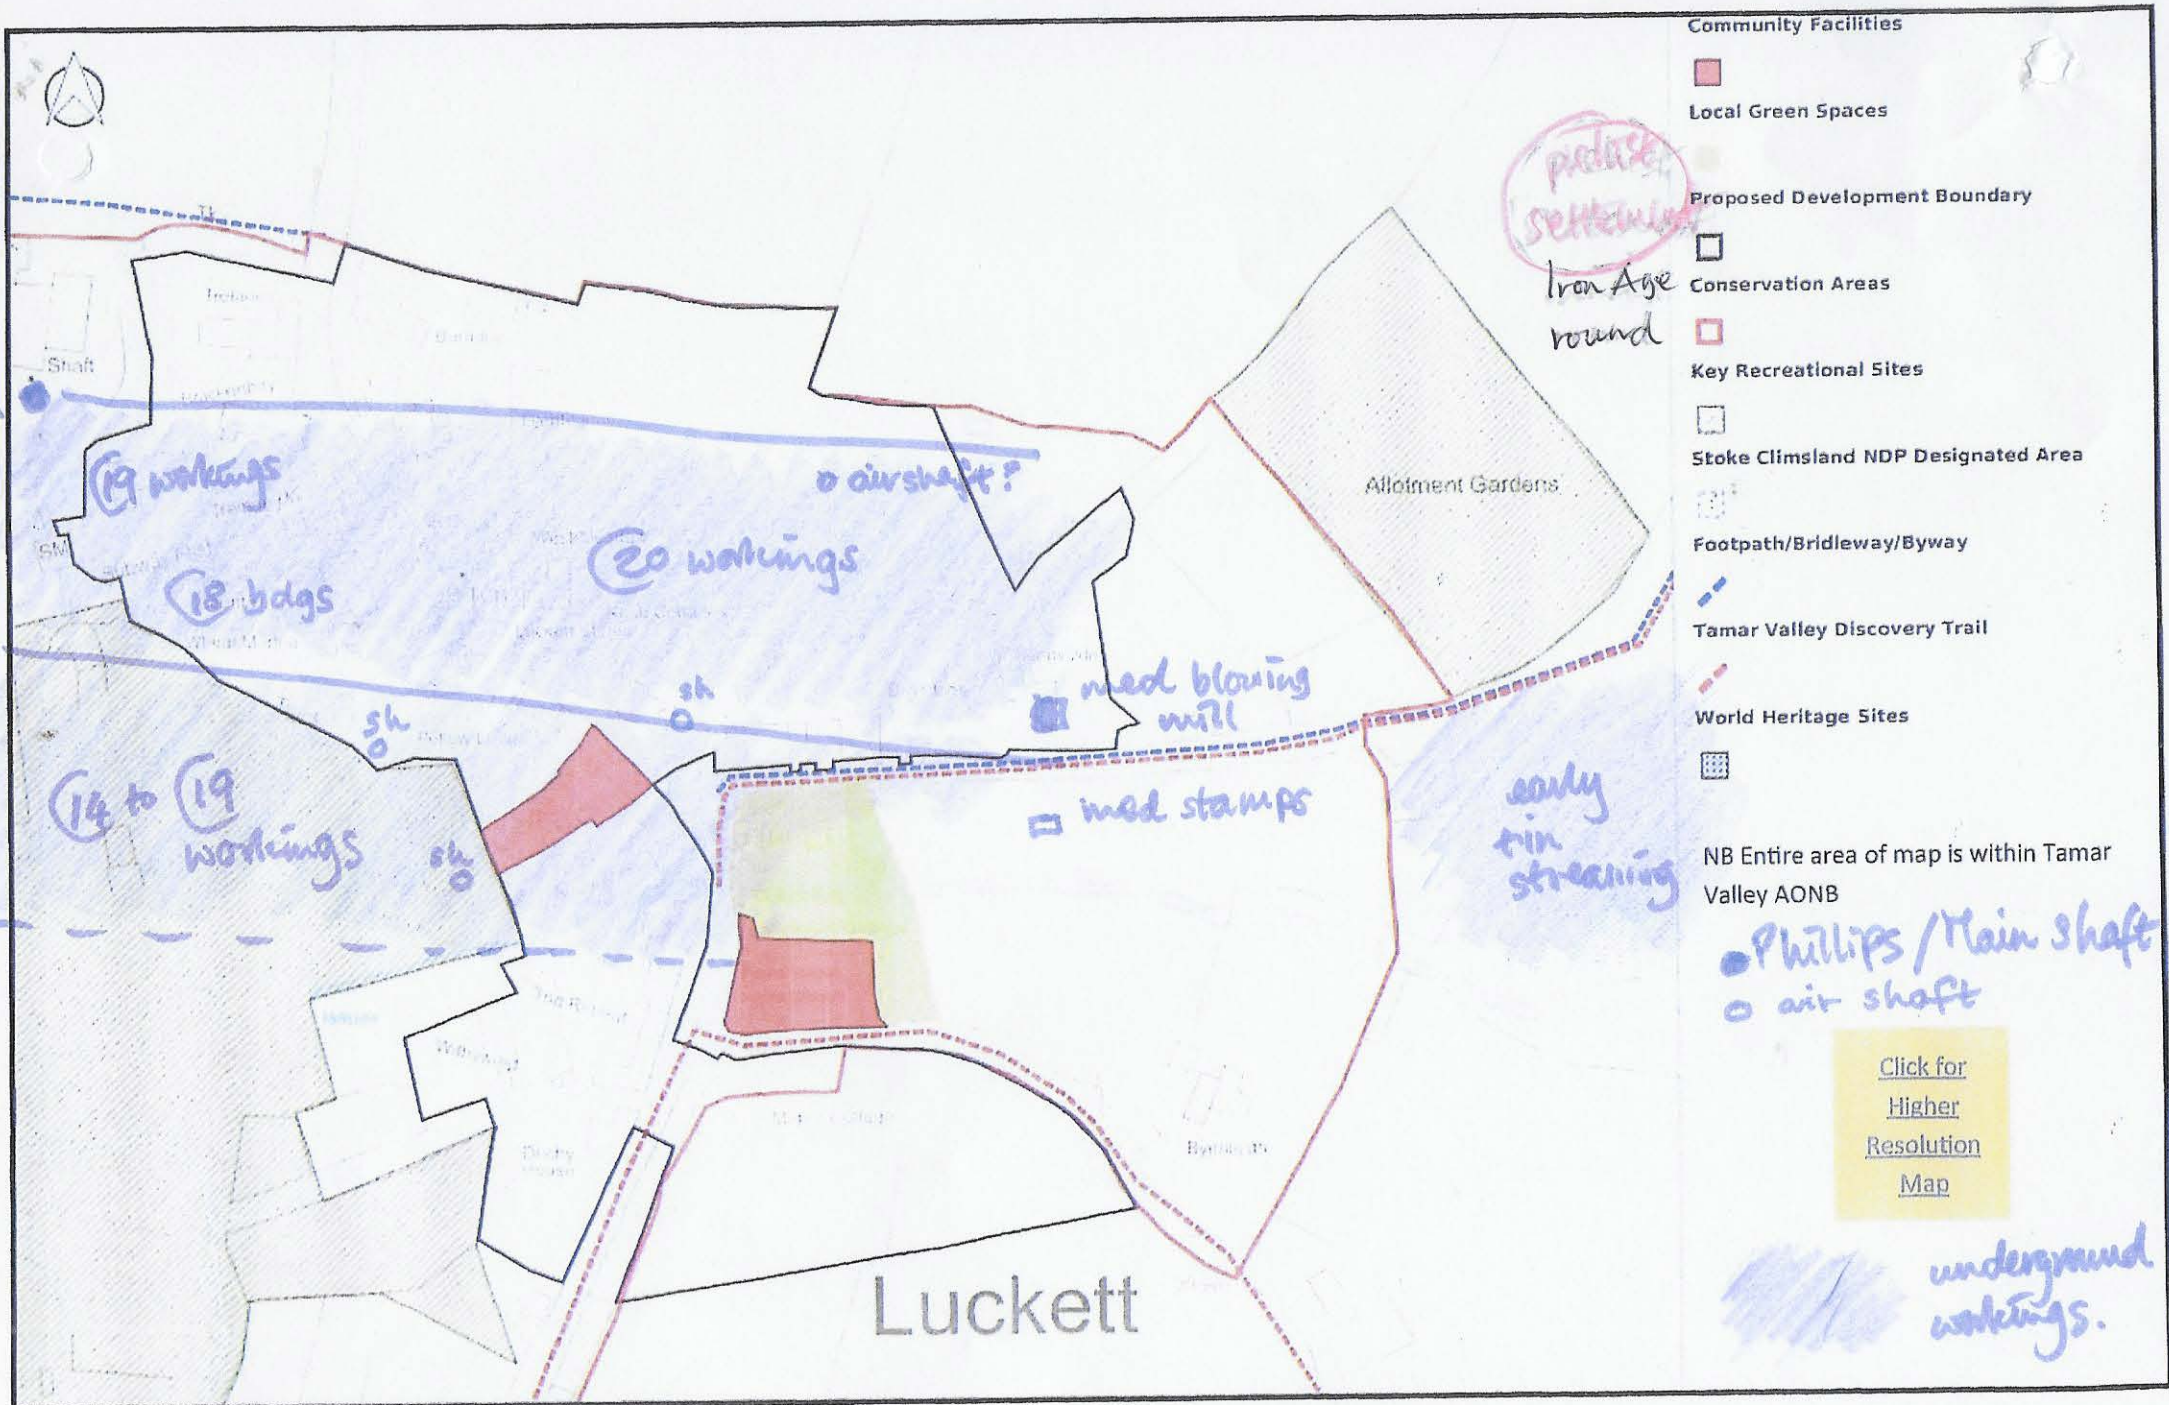 Community Facilities
Local Green Spaces
Proposed Development Boundary
Conservation Areas
Key Recreational Sites
Stoke Climsland NDP Designated Area
Footpath/Bridleway/Byway
Tamar Valley Discovery Trail
World Heritage Sites
NB Entire area of map is within Tamar
Valley AONB
Phillips / Main Shaft
air shaft
Click for
Higher
Resolution
Map
underground
workings.
settlement
Iron Age
round
Shaft
19 workings
airshaft?
Allotment Gardens
20 workings
18 bdgs
sh
med blowing
mill
sh
14 to 19
workings
sh
med stamps
early
tin
streaming
Luckett